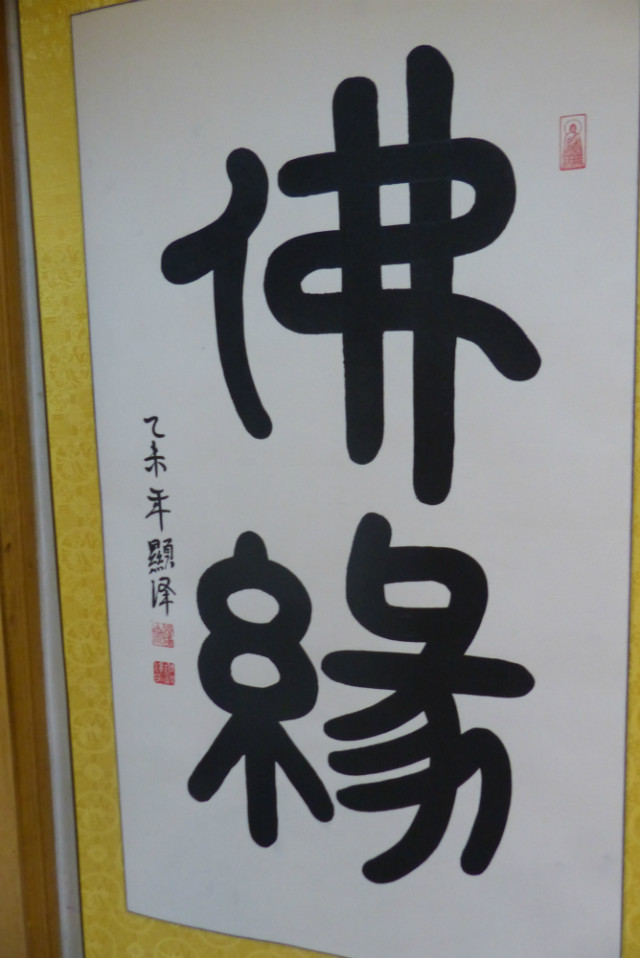 佛緣
乙未年顯泽